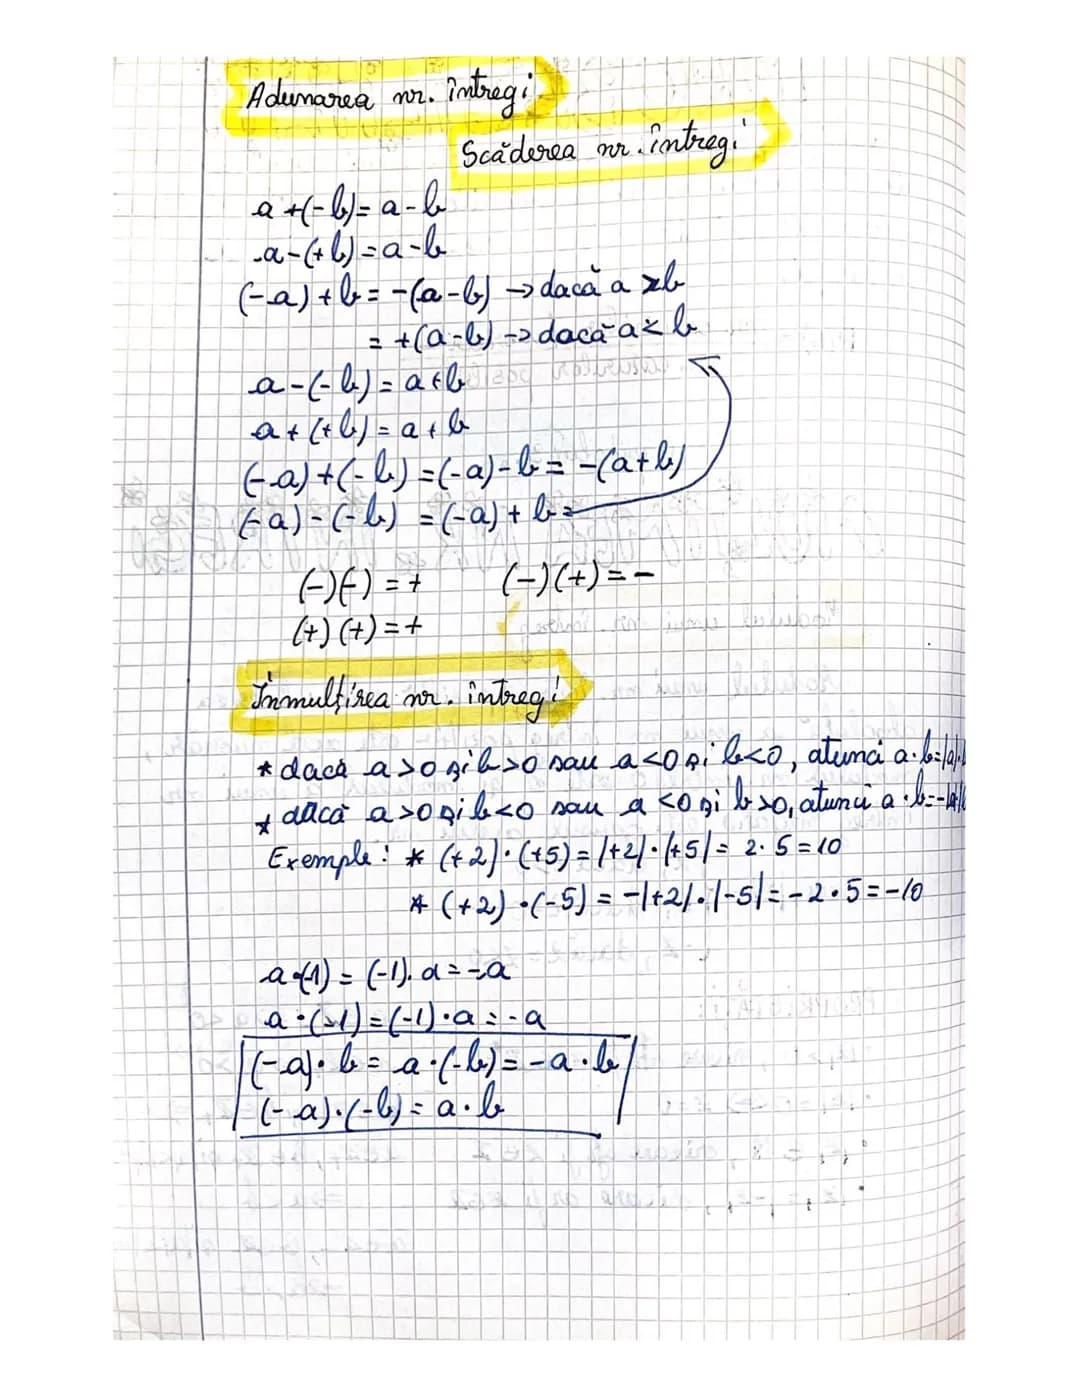 Adunarea nr. întregi
Scăderea nr. întregi
a+(-b)=a-b
a-(+b)=a-b
(-a)+b=-(a-b) → dacă a>b
=+(a-b) → dacă a<b
a-(-b)=a+b
a+(+b)=a+b
(-a)+(-b)=(-a)-b=-(a+b)
(-a)-(-b)=(-a)+b=
(-)(-)=+ (-)(+)=-
(+)(+)=+
Înmulțirea nr. întregi
* dacă a>0 și b>0 sau a<0 și b<0, atunci a·b=|a|·
* dacă a>0 și b<0 sau a<0 și b>0, atunci a·b=-|a|
Exemple: * (+2)·(+5)=|+2|·|+5|=2·5=10
* (+2)·(-5)=-|+2|·|-5|=-2·5=-10
a·(-1)=(-1)·a=-a
a·(-1)=(-1)·a=-a
(-a)·b=a·(-b)=-a·b
(-a)·(-b)=a·b